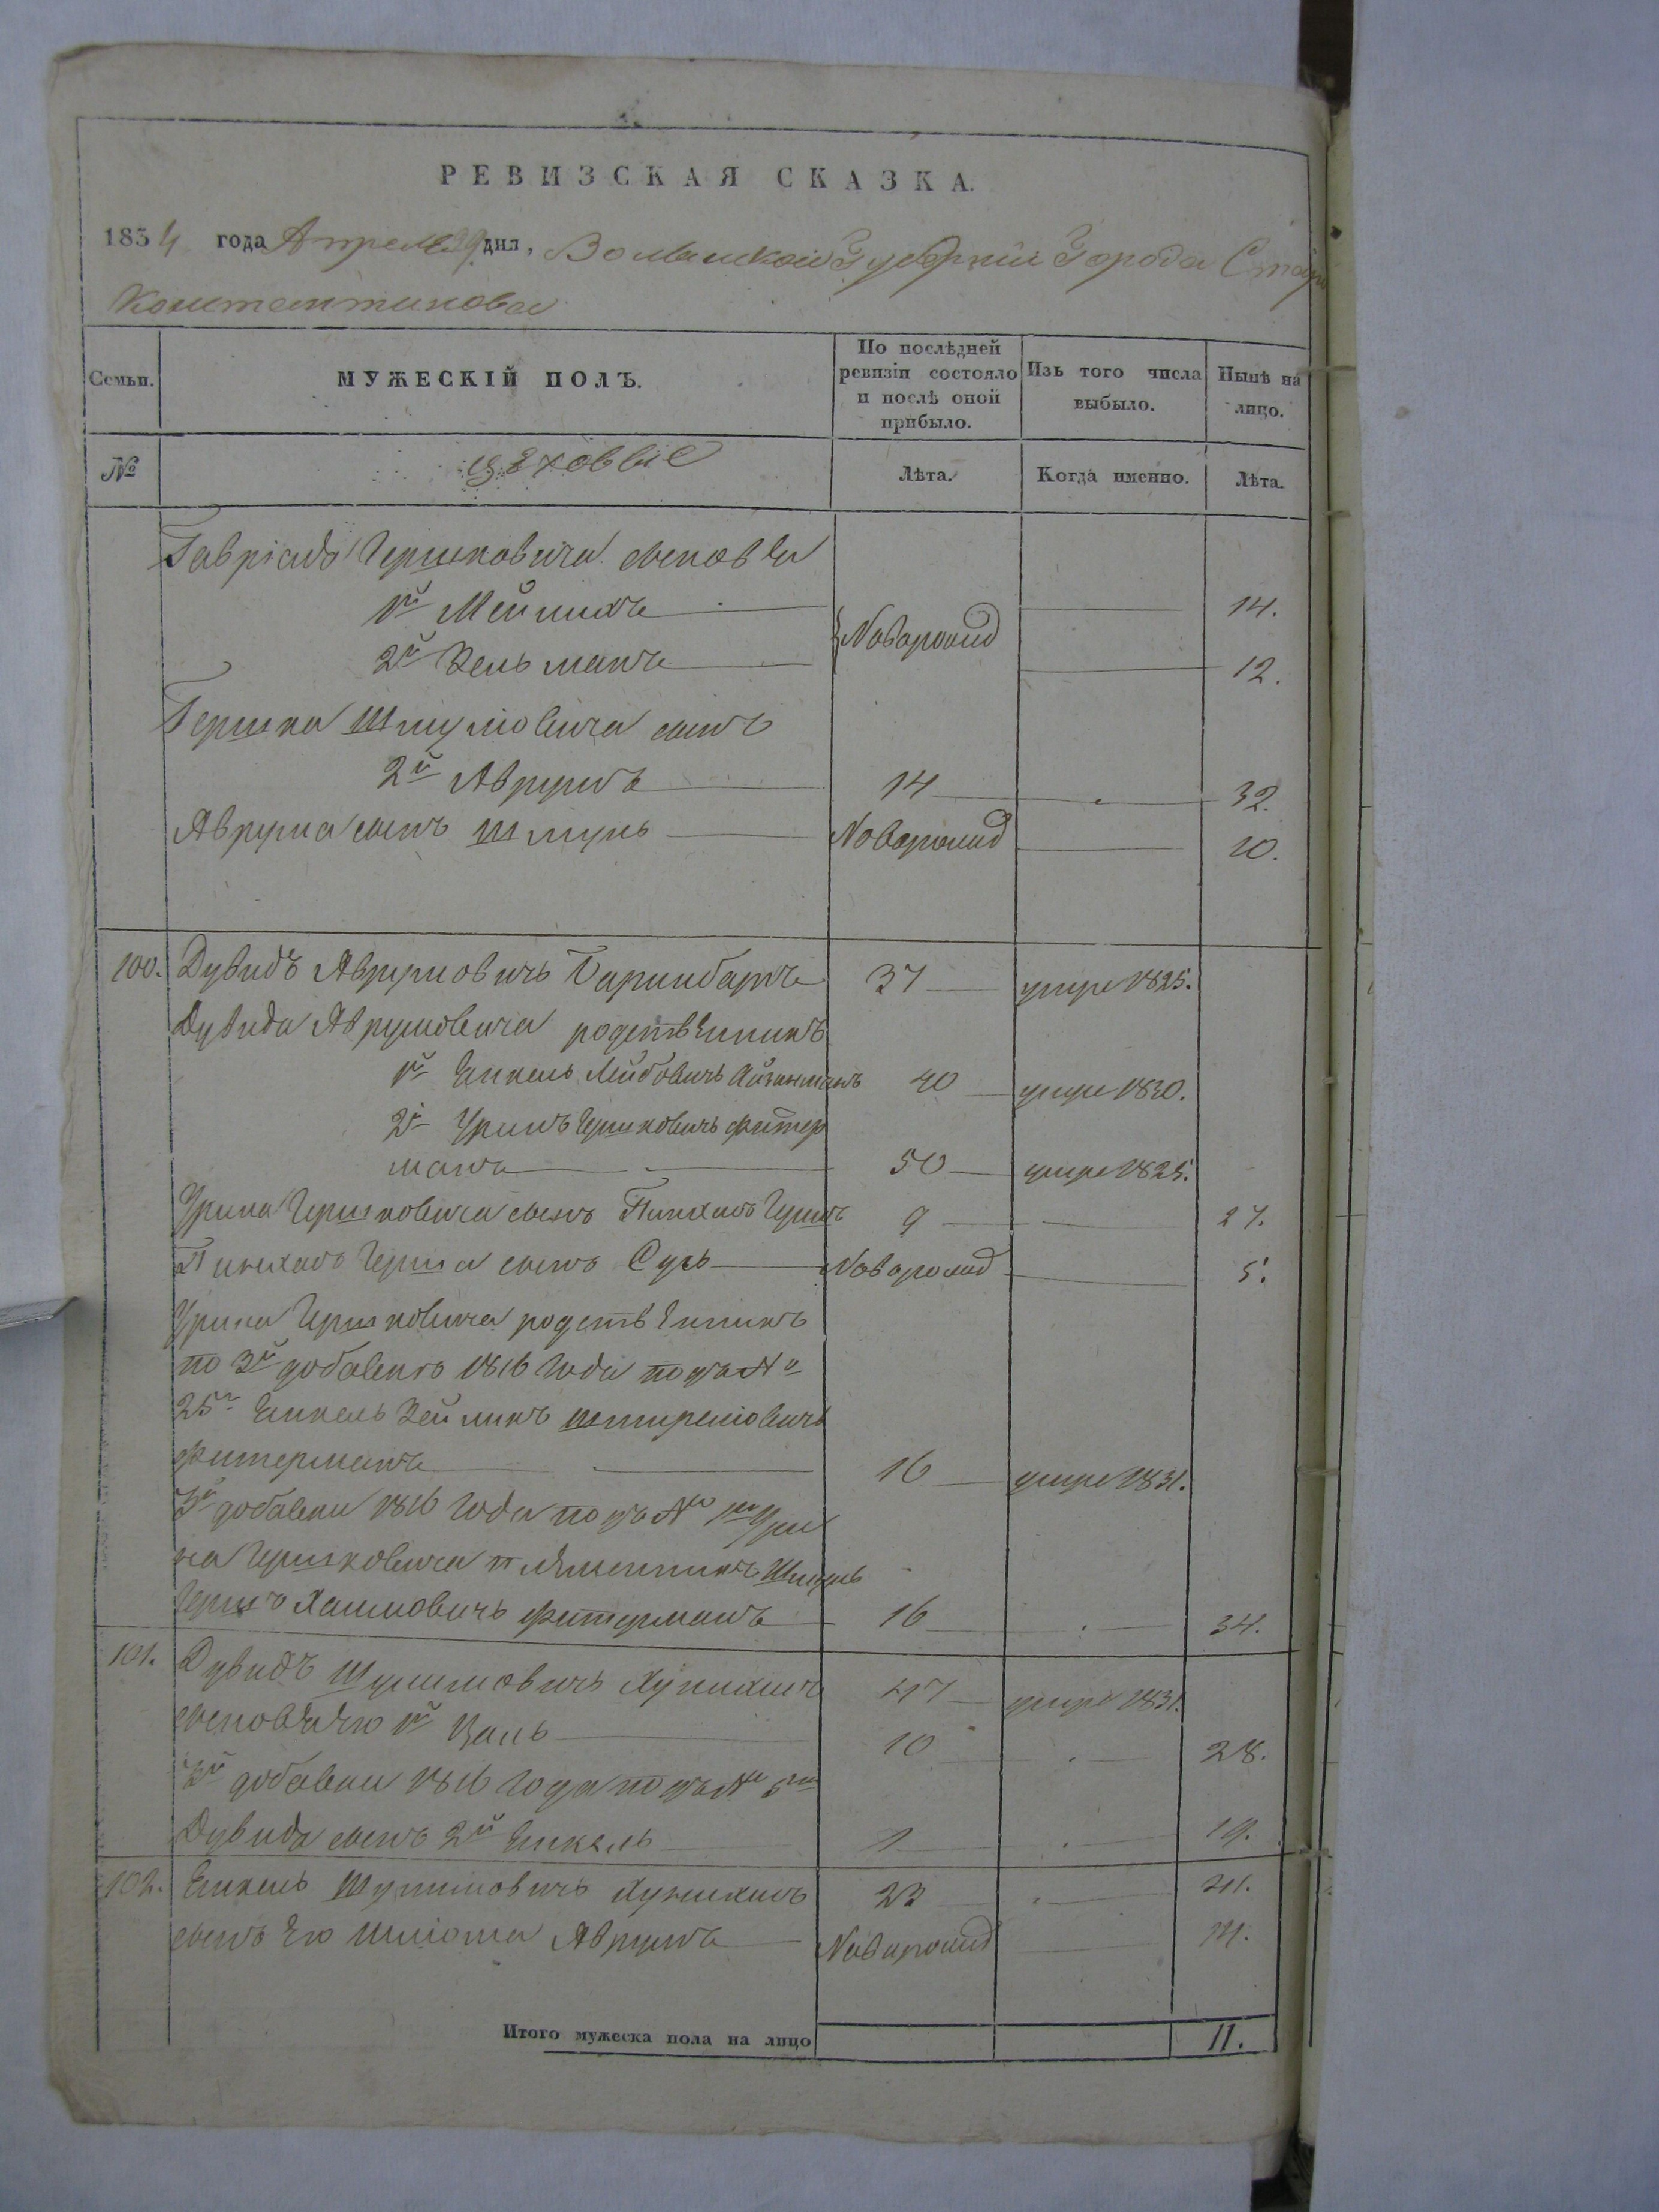 РЕВИЗСКАЯ СКАЗКА.
1834 года Апреля 29 дня, Волынской Губернии Города Старо
Константинова
Семьи. МУЖЕСКІЙ ПОЛЪ. По послѣдней ревизіи состояло и послѣ оной прибыло. Изъ того числа выбыло. Нынѣ на лицо.
№ цеховые Лѣта. Когда именно. Лѣта.
Гавріила Гершковича сыновья
1й Мейлихъ 14.
Новорожд
2й Зельманъ 12.
Гершка Шмулiовича сынъ
2й Аврумъ 14 32.
Аврума сынъ Шмуль Новорожд 10.
100. Дувидъ Аврумовичъ 37 умре 1825.
Дувида Аврумовича родственникъ
1й Янкель Лейбовичъ Айзинманъ 40 умре 1830.
2й Урынъ Гершковичъ Фитер
манъ 50 умре 1825.
Урына Гершковича сынъ Пинхасъ Гершъ 9 27.
Пинхаса Герша сынъ Сусь Новорожд 5.
Урына Гершковича родственникъ
по 3й добавкѣ 1816 года подъ №
25м Янкель Зейликъ
Фитерманъ 16 умре 1831.
3й добавки 1816 года подъ № 1м Уры
на Гершковича племянникъ Шмуль
Гершъ Хаимовичъ Фитерманъ 16 34.
101. Дувидъ 47 умре 1831.
сыновья Его 1й 10 28.
3й добавки 1816 года подъ № 5м
Дувида сынъ 2й Янкель 1 19.
102. Янкель 23 41.
сынъ Его Шлiома Аврумъ Новорожд 14.
Итого мужеска пола на лицо 11.